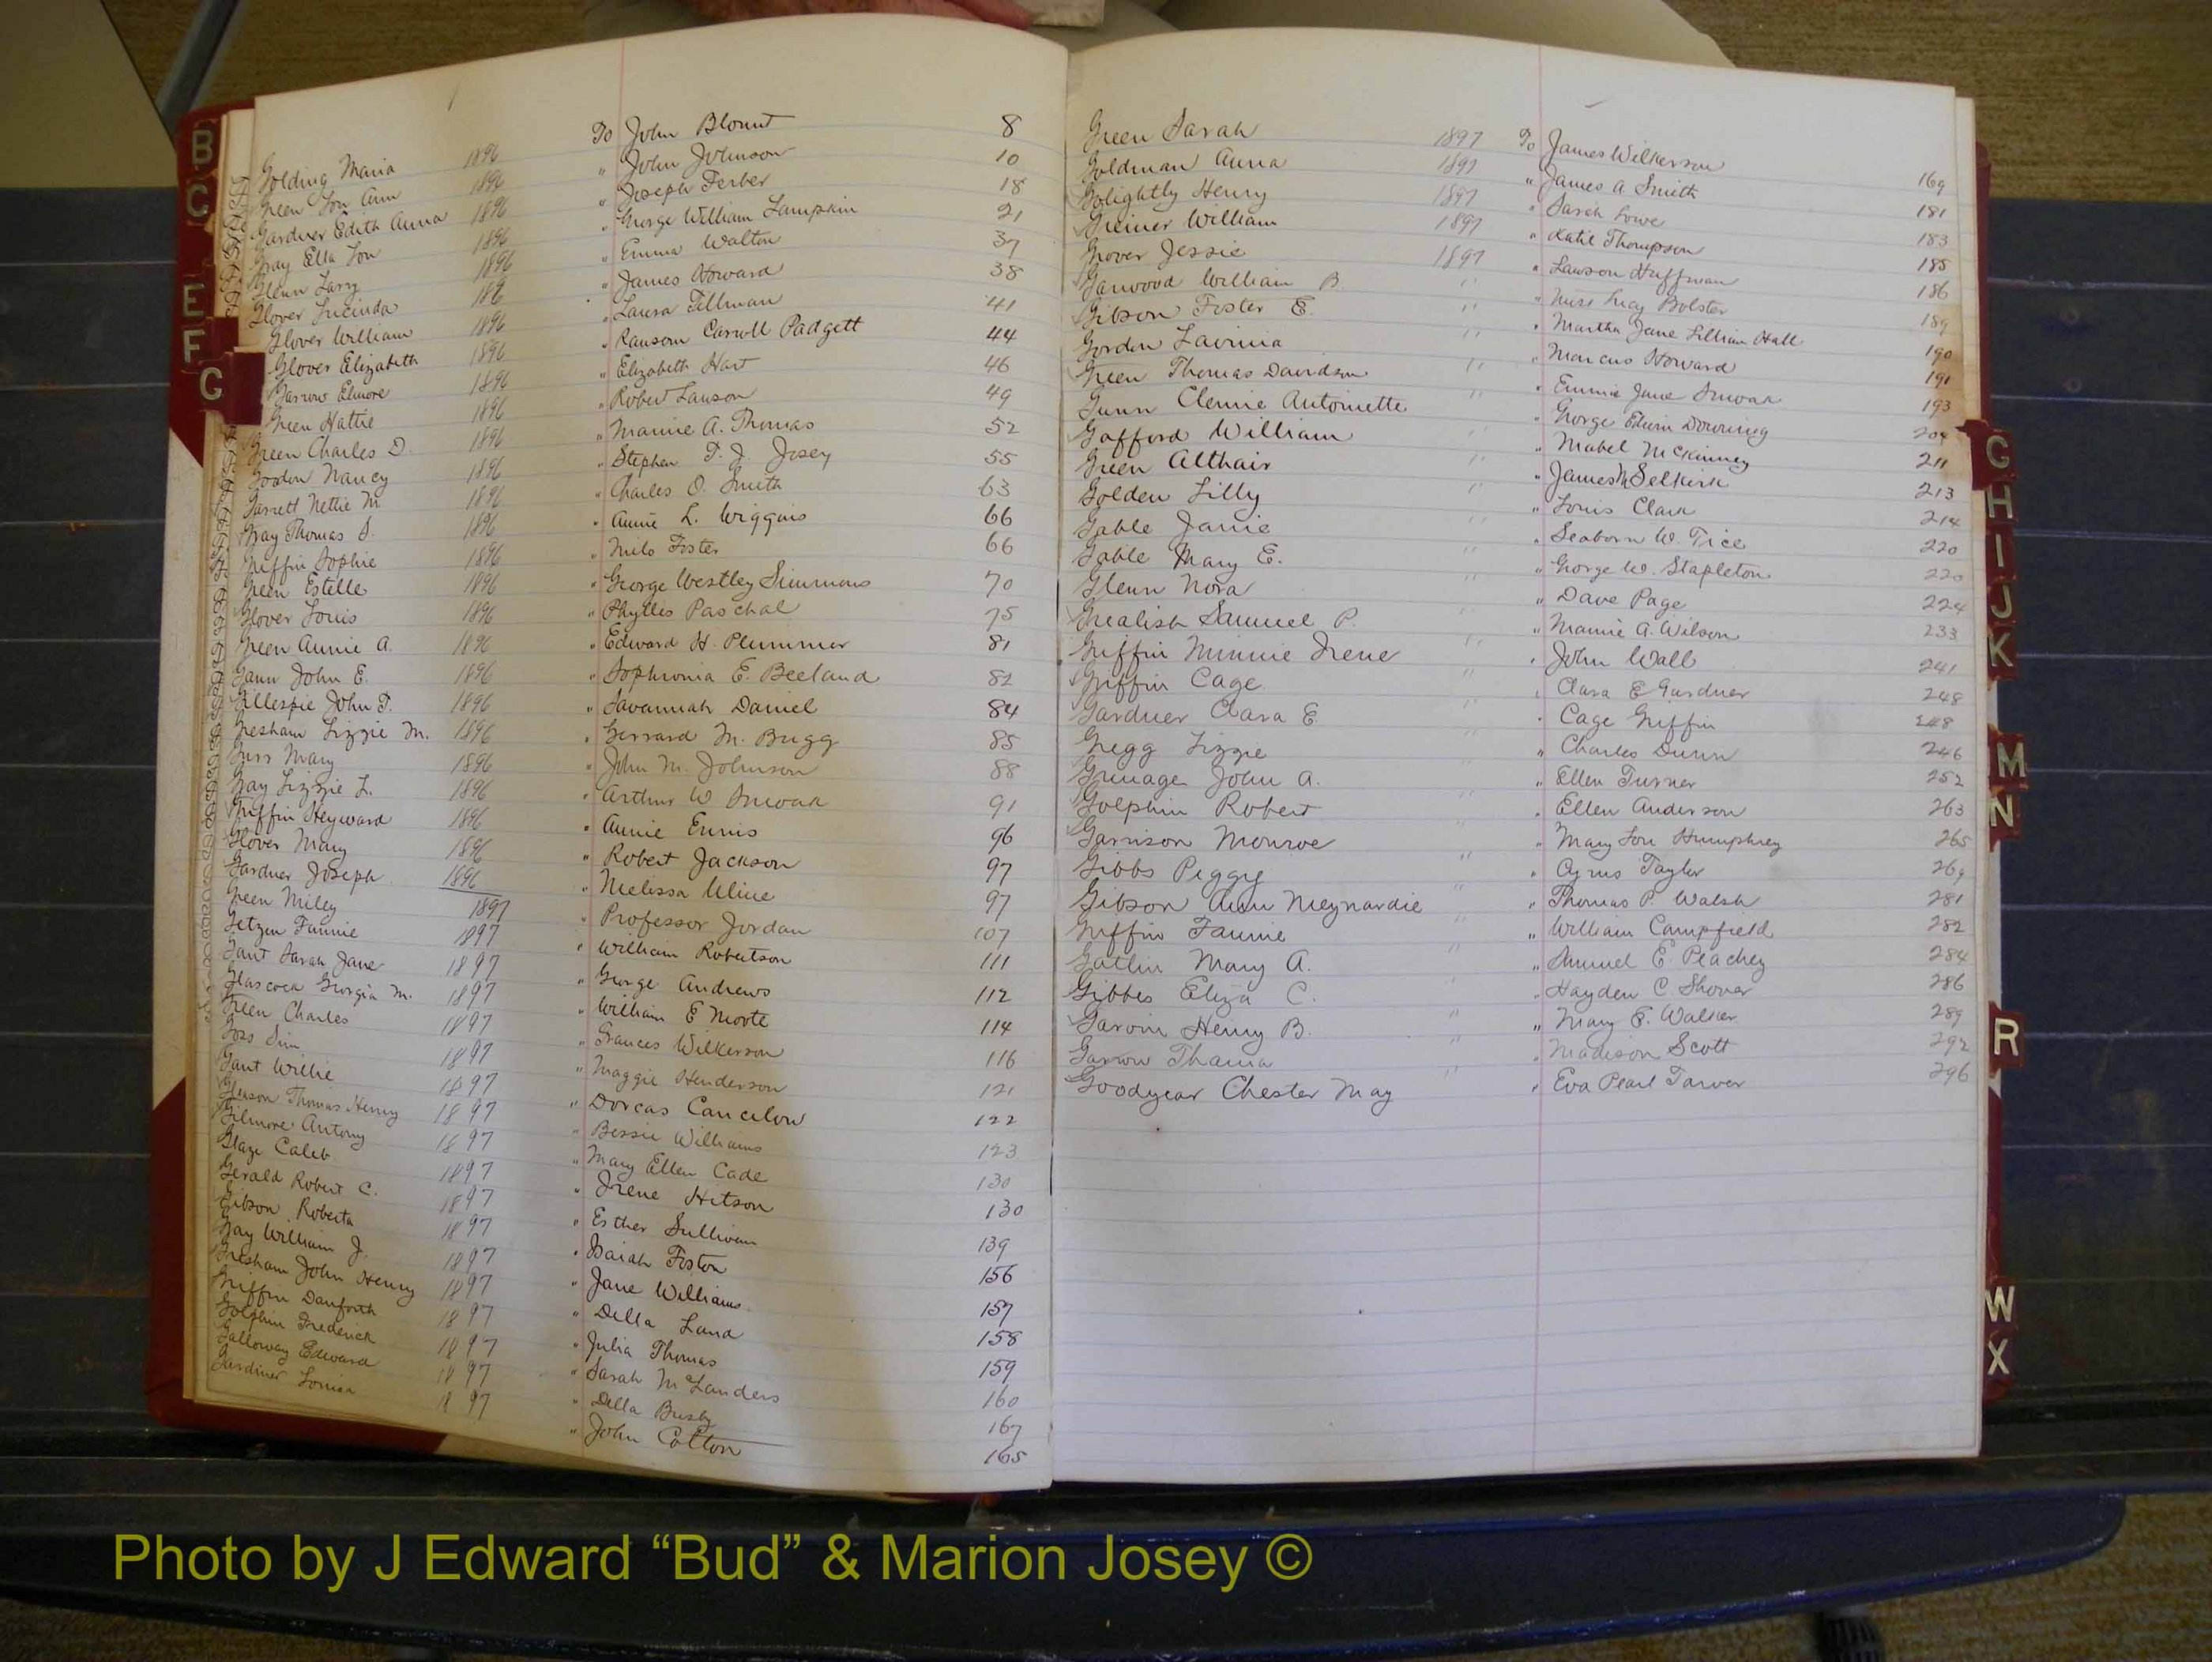 Golding Maria 1896 To John Blount 8
Green Lou Ann 1896 " John Johnson 10
Gardner Edith Anna 1896 " Joseph Ferber 18
Gray Ella Lou 1896 " George William Lampkin 21
Glenn Larry 1896 " Emma Walton 37
Glover Lucinda 189 " James Howard 38
Glover William 1896 " Laura Tillman 41
Glover Elizabeth 1896 " Ransom Carroll Padgett 44
Garrow Elmore 1896 " Elizabeth Hart 46
Green Hattie 1896 " Robert Lawson 49
Green Charles D. 1896 " Mamie A. Thomas 52
Gordon Nancy 1896 " Stephen T. J. Josey 55
Garrett Nettie M 1896 " Charles O. Smith 63
Gray Thomas S. 1896 " Annie L. Wiggins 66
Griffin Sophie 1896 " Milo Foster 66
Green Estelle 1896 " George Westley Simmons 70
Glover Louis 1896 " Phylles Paschal 75
Green Annie A. 1896 " Edward H. Plummer 81
Gann John E. 1896 " Sophronia E. Beeland 82
Gillespie John T. 1896 " Savannah Daniel 84
Gresham Lizzie M. 1896 " Gerrard M. Bugg 85
Mary 1896 " John M. Johnson 88
Gay Lizzie L. 1896 " Arthur W Smoak 91
Griffin Heyward 1896 " Annie Ennis 96
Glover Mary 1896 " Robert Jackson 97
Gardner Joseph 1896 " Melissa Cline 97
Green Miley 1897 " Professor Jordan 107
Getzen Fannie 1897 " William Robertson 111
Gant Sarah Jane 1897 " George Andrews 112
Glascock Georgia M. 1897 " William E 114
Green Charles 1897 " Frances Wilkerson 116
Goss Sim 1897 " Maggie Henderson 121
Gant Willie 1897 " Dorcas Cancelow 122
Gleason Thomas Henry 1897 " Bessie Williams 123
Gilmore Antony 1897 " Mary Ellen Cade 130
Glaze Caleb 1897 " Irene Hitson 130
Gerald Robert C. 1897 " Esther Sullivan 139
Gibson Roberta 1897 " Isaiah Foston 156
Gay William J. 1897 " Jane Williams 157
Gresham John Henry 1897 " Della Land 158
Griffin Danforth 1897 " Julia Thomas 159
Golphin Frederick 1897 " Sarah M Landers 160
Galloway Edward 1897 " Della Busby 167
Gardiner Louisa 1897 " John Cotton 165
Green Sarah 1897 To James Wilkerson 169
Goldman Anna 1897 " James A. Smith 181
Golightly Henry 1897 " Sarah Lowe 183
Greiner William 1897 " Katie Thompson 185
Grover Jessie 1897 " Lawson Huffman 186
Garwood William B. " " Miss Lucy Bolster 189
Gibson Foster E. " " Martha Jane Lillian Hall 190
Gordon Lavinia " " Marcus Howard 191
Green Thomas Davidson " " Emmie Jane Smoak 193
Gunn Clemie Antoinette " " George Edwin Downing 204
Gafford William " " Mabel McKinney 211
Green Althair " " James M Selkirk 213
Golden Lilly " " Louis Clark 214
Gable Janie " " Seaborn W. Tice 220
Gable Mary E. " " George W. Stapleton 220
Glenn Nora " " Dave Page 224
Grealish Samuel P. " " Mamie A. Wilson 233
Griffin Minnie Irene " " John Wall 241
Griffin Cage " " Clara E Gardner 248
Gardner Clara E. " " Cage Griffin 248
Gregg Lizzie " " Charles Dunn 246
Grinage John A. " " Ellen Turner 252
Golphin Robert " " Ellen Anderson 263
Garrison Monroe " " Mary Lou Humphrey 265
Gibbs Peggy " " Cyrus Taylor 269
Gibson Ann Meynardie " " Thomas P. Walsh 281
Griffin Fannie " " William Campfield 282
Gatlin Mary A. " " Samuel E. Peachey 284
Gibbes Eliza C. " " Hayden C. Shover 286
Garvin Henry B. " " Mary E. Walker 289
Garrow Thania " " Madison Scott 292
Goodyear Chester May " " Eva Pearl Tarver 296
B
C
E
F
G
G
H
I
J
K
M
N
R
W
X
Photo by J Edward “Bud” & Marion Josey ©